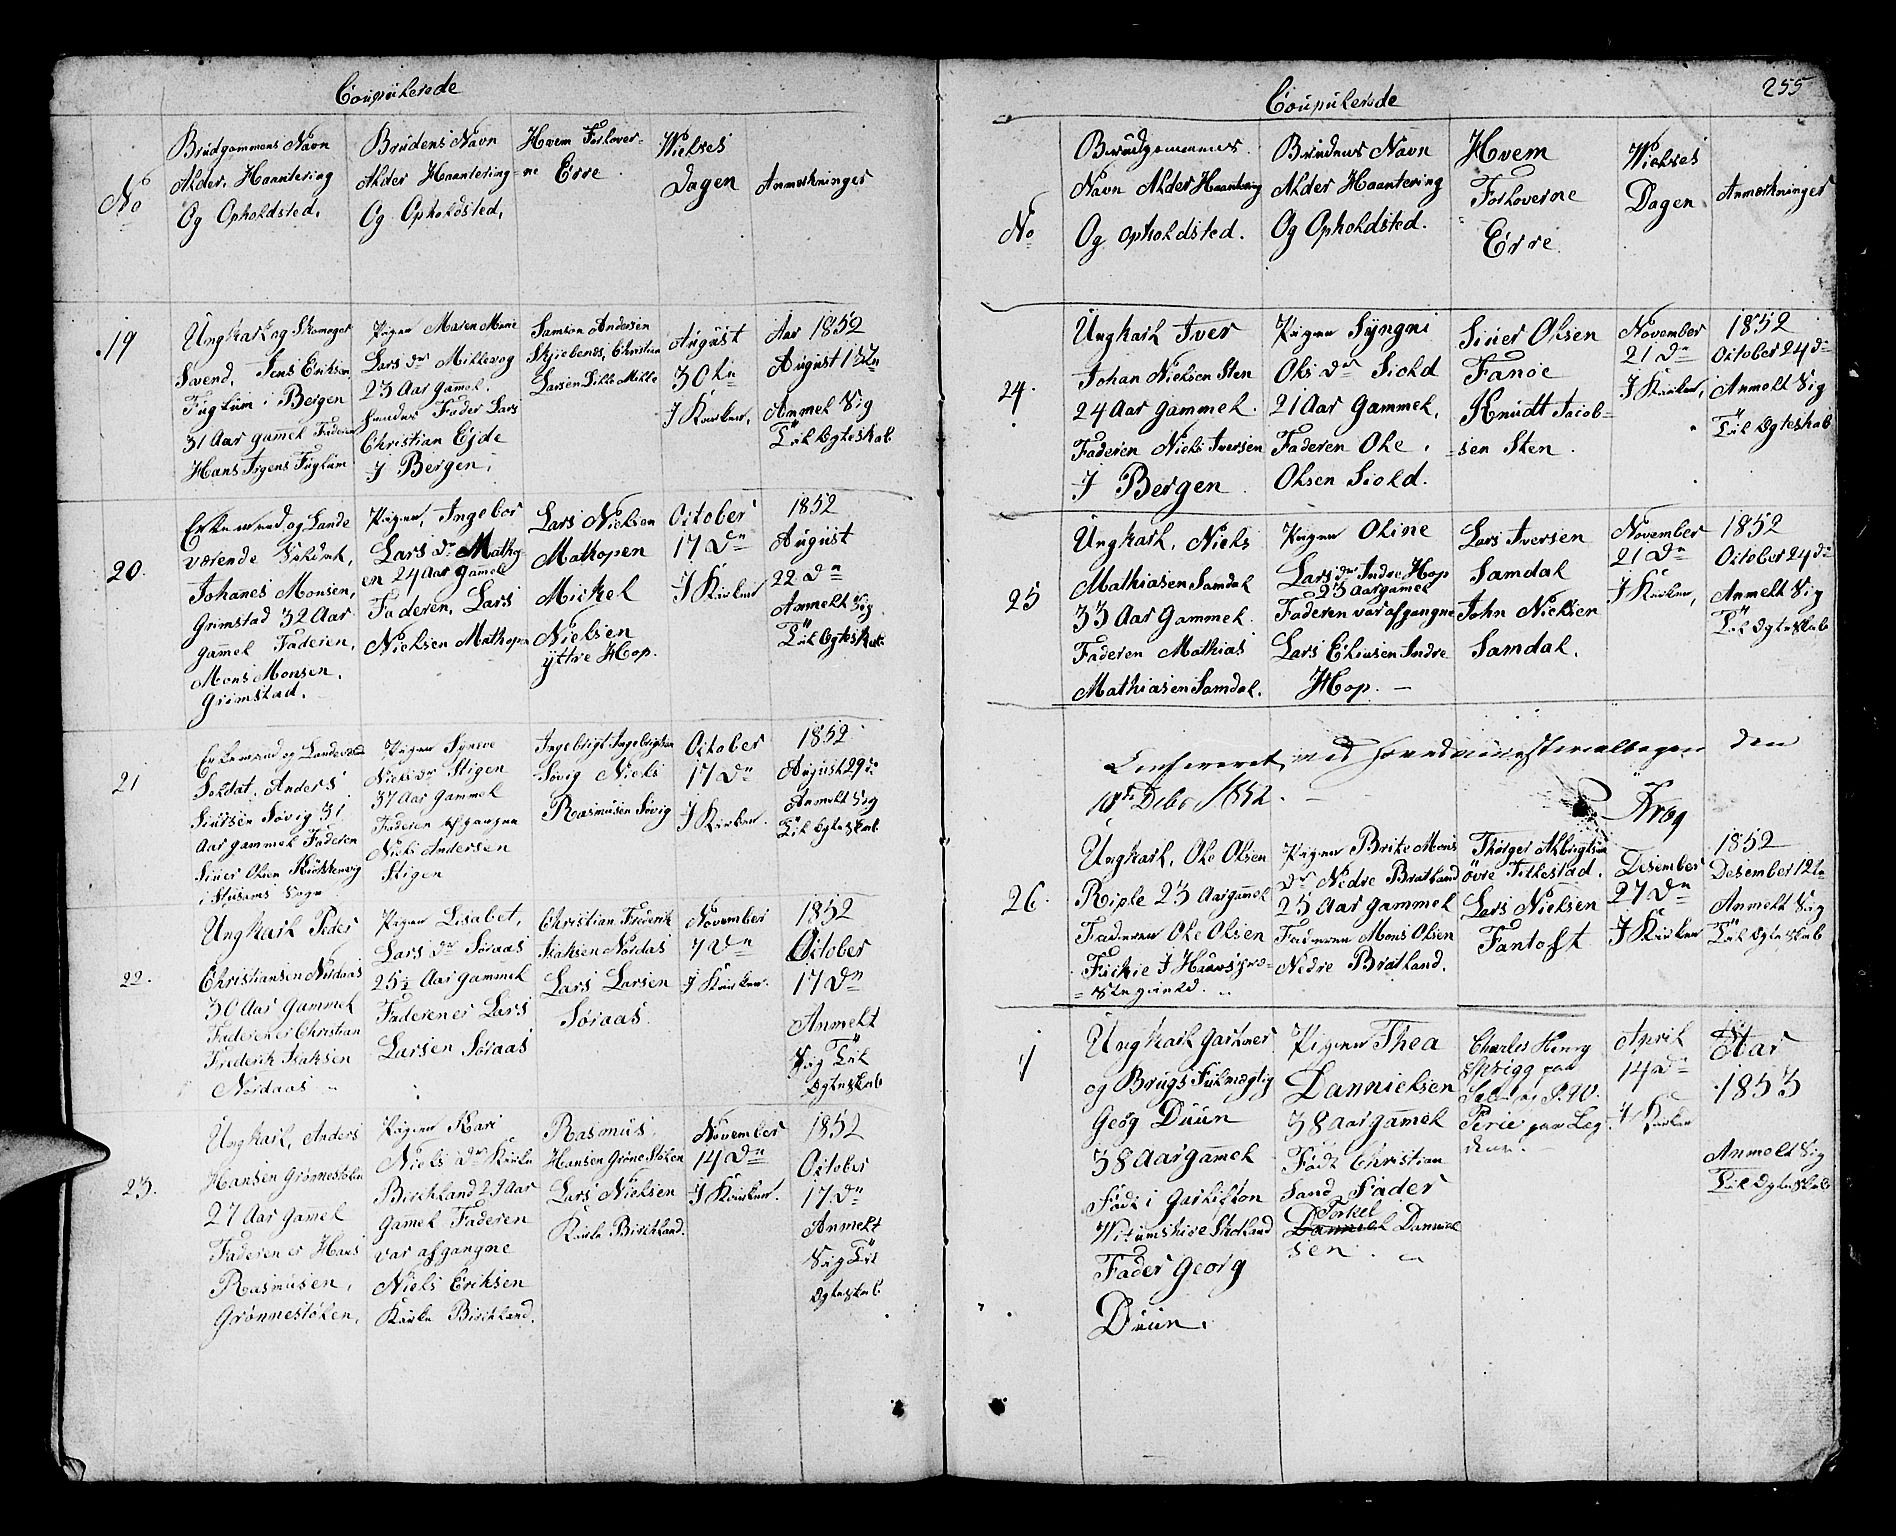 Coupulerede
No
Brudgommens Navn
Alder, Haantering
Og Opholdsted.
Brudens Navn
Alder Haantering
Og Opholdsted,
Hvem Forlover-
ne Erre.
Wielses
Dagen
Anmerkninger
19
Ungkarl og Skomager
Svend, Jens Eriksen
Fuglum i Bergen
31 Aar gammel Faderen
Hans Jrgens Fuglum
Pigen Maren Marie
Lars dr Miklevog
23 Aar gamel.
hendes Fader Lars
Christian Ejde
J Bergen.
Samson Andersen
Skjiebenes, Christian
Larsen Lille Milde
August
30te
J Kirken.
Aar 1852
August
Anmel Sig
Til Egteskab
20.
Enkemand, og Lande
værende Soldat,
Johanes Monsen,
Grimstad 32 Aar
gamel Faderen,
Mons Monsen.
Grimstad.
Pigen, Ingebor
Lars dr Mathop
en 24 Aar gamel
Faderen, Lars
Nielsen Mathopen
Lars Nielsen
Mathopen
Mickel
Nielsen
yttre Hop.
October
17 Dn
J Kirken
1852
August
22 Dn
Anmelt Sig
Til Egteskab
21
Enkemand og Landeværn
Soldat, Anders
Siursen Søvig 31
Aar gammel Faderen
Siver Olsen
i Stusams Sogn
Pigen Syneve
Niels dr Stigen
37 Aar gammel
Faderen Afgangen
Niels Andersen
Stigen
Ingebrigt Ingebrigtsen
Søvig Niels
Rasmusen Søvig
October
17 Dn
J Kirken.
1852
August 29 de
Anmelt Sig
Til Egteskab
22.
Ungkarl Peder
Christiansen Nordaas
30 Aar gammel
Faderen er Christian
Frederik Isaksen
Nordaas
Pigen Lisabet,
Lars dr Søraas
25½ Aar gammel
Faderen er Lars
Larsen Søraas
Christian Frederik
Isaksen Nordas
Lars Larsen
Søraas.
November
7 Dn
J Kirken.
1852
October
17 Dn
Anmelt
Sig Til
Egteskab
23.
Ungkarl, Anders
Hansen Grønnestølen
27 Aar gamel
Faderen er Hans
Rasmusen,
Grønnestølen,
Pigen Kari
Niels dr Kirke
Birchland 29 Aar
gamel Faderen
var afgangne
Niels Eriksen
Kirke Birchland.
Rasmus,
Hansen Grønestølen
Lars Nielsen
Kirke Birchland.
November
14 Dn
J Kirken.
1852
October
17. Dn
Anmelt
Sig Til
Egteskab
255
Coupulerede
No
Brudgommenes
Navn Alder Haantering
Og opholdsted.
Brudens Navn
Alder Haantering
Og Opholdsted.
Hvem
Forloverne
Erre
Wielses
Dagen
Anmerkninger
24.
Ungkarl Iver
Johan Nielsen Sten
24 Aar gammel.
Faderen Niels Iversen
J Bergen
Pigen Syngni
Ols dr Siold
21 Aar Gammel,
Faderen Ole
Olsen Siold.
Siver Olsen
Fanøe
Knudt Jacob-
sen Sten.
November
21 Dn
J Kirken,
1852
October 24 de
Anmelt Sig
Til Egteskab
25
Ungkarl, Niels
Mathiasen Samdal
33 Aar Gammel.
Faderen Mathias
Mathiasen Samdal.
Pigen Oline
Lars dr Indre Hop
23 Aar gamel
Faderen var afgangne
Lars Eliasen Indre
Hop. -
Lars Iversen
Samdal
John Nielsen
Samdal.
November
21 Dn
J Kirken,
1852
October 24 de
Anmelt Sig
Til Egteskab
Confereret med Hovedministerialbogen den
18de Debr 1852. - Krog
26.
Ungkarl, Ole Olsen
Riple 23 Aar gamel
Faderen Ole Olsen
J Haus Præ-
stegield.
Pigen Brite Mons
dr Nedre Bratland
25 Aar gammel
Faderen Mons Olsen
Nedre Bratland.
Thorger Albrigtsen
övre Titlestad.
Lars Nielsen
Fantoft
Desember
27 Dn
J Kirken
1852
Desember 12te
Anmelt Sig
Til Egteskab
1
Ungkarl gartner
og Brugs Fulmægtig
Georg Duun
38 Aar gamel
Født i Garlifton
Witumshire Skotland
Fader Georg
Duun.
Pigen Thea
Dannielsen
38 Aar gamel
Født Christian
Sand Fader
Torkel
Danniel Danniel
sen.
Charles Henry
Sprigg paa
Perie paa Leg
den. -
April
14 Dn
J Kirken
Aar
1853
Anmelt Sig
Til Egteskab